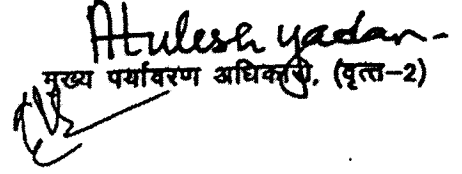 Atulesh yadav
मुख्य पर्यावरण अधिकारी, (वृत्त-2)